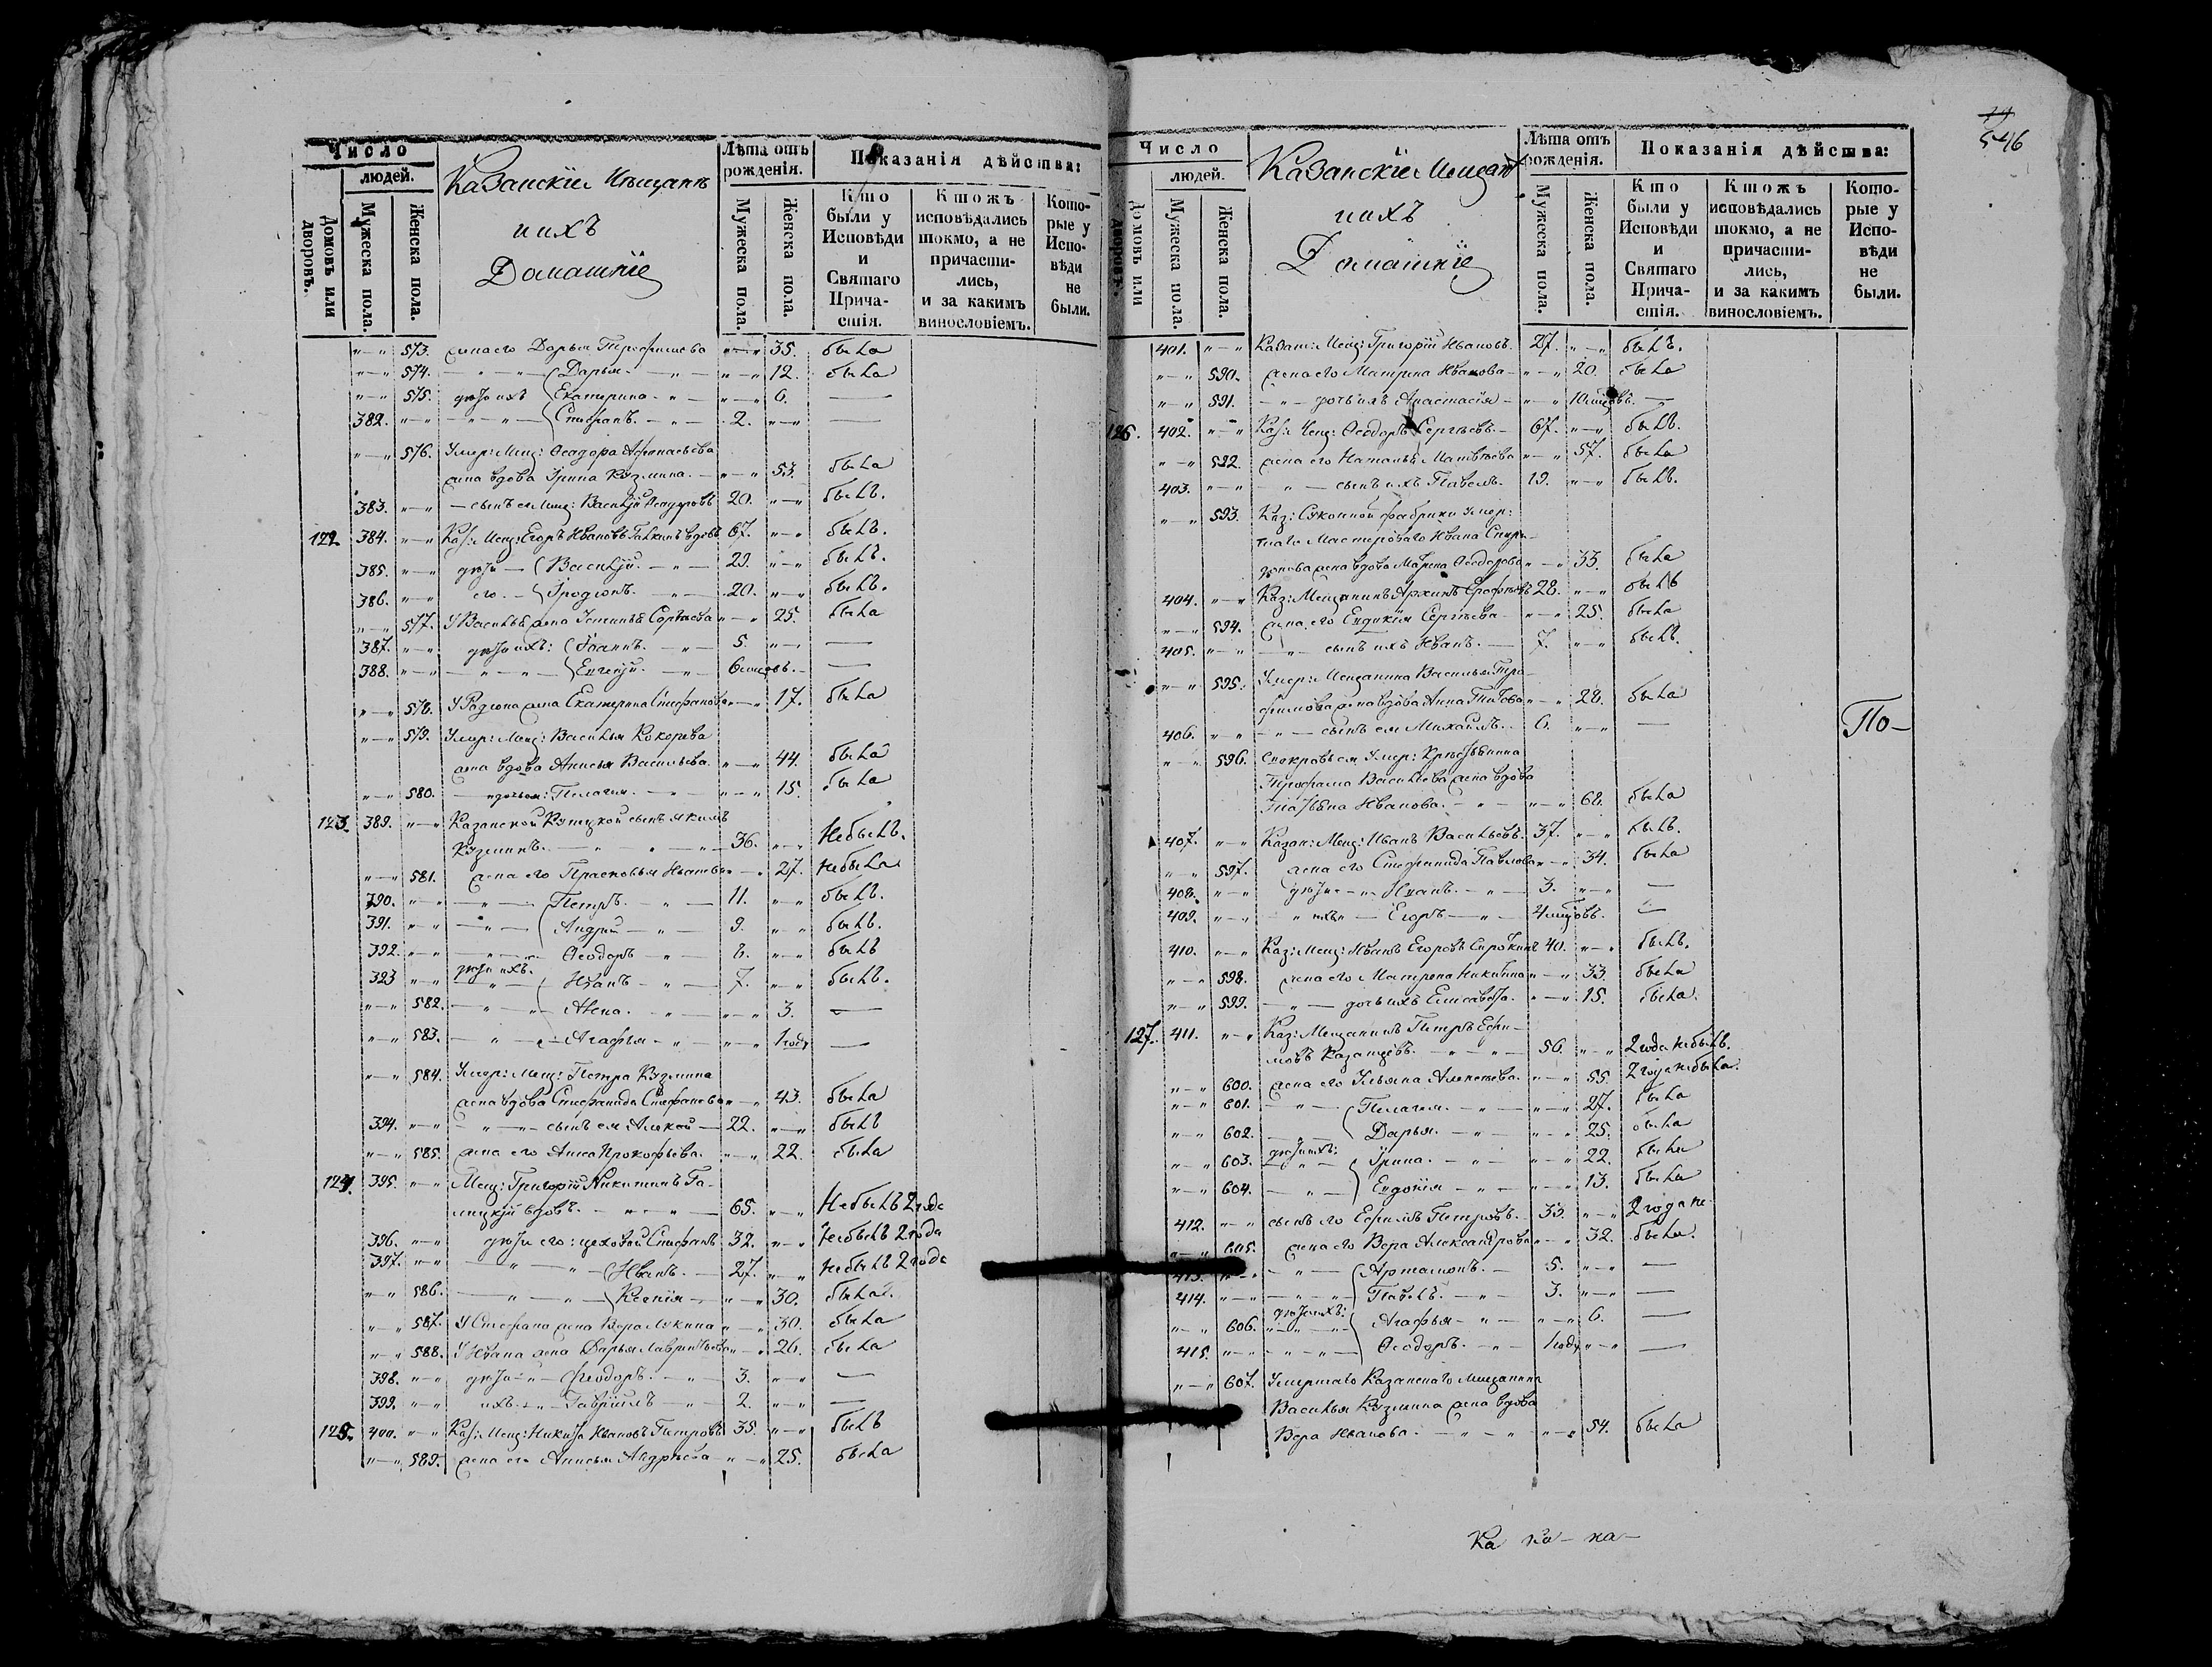 Число
людей.
Домовъ или дворовъ.
Мужеска пола.
Женска пола.
Казанскіи Мещане
и ихъ
Домашніе
Лѣта отъ рожденія.
Мужеска пола.
Женска пола.
Показанія дѣйства:
Кто были у Исповѣди и Святаго Причастія.
Ктожъ исповѣдались токмо, а не причастились, и за какимъ винословіемъ.
Которые у Исповѣди не были.
"—" 573. жена его Дарья Трофимова "—" 35. была
"—" 574. — " — Дарья — " — "—" 12. была
"—" 575. дѣти ихъ Екатерина — " — "—" 6. —
382. "—" — " — Стефанъ. — " — 2. "—" —
"—" 576. Умер: Мещ: Ѳеодора Афанасьева
жена вдова Ирина Кузмина. — "—" 53. была
383. "—" — сынъ ея Мещ: Василій Ѳеодоровъ 20. "—" былъ.
122. 384. "—" Каз: Мещ: Егоръ Ивановъ вдовъ 67. "—" былъ.
385. "—" дѣти — Василій. — " — 29. "—" былъ.
386. "—" его. — Иродіонъ. — 20. "—" былъ.
"—" 577. У Василья жена Устинья Сергѣева "—" 25. была
387. "—" дѣти ихъ: Іоаннъ. — " — 5. "—" —
388. "—" — " — Евгеній. — " — 6 мѣсяцовъ. —
"—" 578. У Родіона жена Екатерина Стефанова "—" 17. была
"—" 579. Умер: Мещ: Василья Кокорева
жена вдова Анисья Васильева. "—" 44. была
"—" 580. — дочь ея: Пелагея. — " — "—" 15. была
123. 389. "—" Казанской Купецкой сынъ Якимъ
Кузминъ. — " — " — 36. "—" Небылъ.
"—" 581. жена его Прасковья Иванова "—" 27. небыла
390. "—" — " — Петръ. — " — 11. "—" былъ.
391. "—" — " — Андрей — " — 9. "—" былъ.
392. "—" — " — Ѳеодоръ — " — 8. "—" былъ
393 "—" дѣти ихъ. Иванъ — " — 7. "—" былъ.
"—" 582. — " — Анна. — " — "—" 3. —
"—" 583. — " — Агафья — " — "—" 1 году —
"—" 584. Умер: Мещ: Петра Кузмина
жена вдова Стефанида Стефанова "—" 43. была
394. "—" — " — сынъ ея Алексей — 22. "—" былъ
"—" 585. жена его Анна Прокофьева. "—" 22. была
124. 395. "—" Мещ: Григорій Никитинъ Га-
лицкій вдовъ. — " — " — 65. "—" Небылъ 2 года
396. "—" дѣти его: цеховой Стефанъ 32. "—" Небылъ 2 года
397. "—" — " — Иванъ. — 27. "—" Небылъ 2 года
"—" 586. — " — Ксенія — "—" 30. была.
"—" 587. У Стефана жена Вера Лукина "—" 30. была
"—" 588. У Ивана жена Дарья Лаврентьева "—" 26. была
398. "—" дѣти — Ѳеодоръ. — " — 3. "—" —
399. "—" ихъ. — " — Гавріилъ — " — 2. "—" —
125. 400. "—" Каз: Мещ: Никита Ивановъ Петровъ 35. "—" былъ
"—" 589. жена его Анисья Андреева — "—" 25. была
546
Число
людей.
Домовъ или дворовъ.
Мужеска пола.
Женска пола.
Казанскіи Мещане
и ихъ
Домашніе
Лѣта отъ рожденія.
Мужеска пола.
Женска пола.
Показанія дѣйства:
Кто были у Исповѣди и Святаго Причастія.
Ктожъ исповѣдались токмо, а не причастились, и за какимъ винословіемъ.
Которые у Исповѣди не были.
401. "—" Казан: Мещ: Григорій Ивановъ. 27. "—" былъ.
"—" 590. жена его Матрена Иванова — "—" 20. была
"—" 591. — " — дочь ихъ Анастасія — "—" —
126. 402. "—" Каз: Мещ: Ѳеодоръ Сергѣевъ. — 67. "—" былъ.
"—" 592. жена его Наталья Матвѣева "—" 57. была
403. "—" — " — сынъ ихъ Павелъ. 19. "—" былъ.
"—" 593. Каз: Суконной фабрики Умер-
шаго Мастероваго Ивана Спири-
донова жена вдова Марена Ѳеодорова "—" 33. была
404. "—" Каз: Мещанинъ Архипъ 28. "—" былъ
"—" 594. жена его Евдокія Сергѣева "—" 25. была
405. "—" — " — сынъ ихъ Иванъ. — 7. "—" былъ.
"—" 595. Умер: Мещанина Василья Тро-
фимова жена вдова Анна Титова "—" 28. была
406. "—" — " — сынъ ея Михаилъ. 6. "—" — По-
"—" 596. Свекровь ея Умер: Крестьянина
Трофима Васильева жена вдова
Татьяна Иванова. — " — "—" 68. была
407. "—" Казан: Мещ: Иванъ Васильевъ. 37. "—" былъ.
"—" 597. жена его Стефанида Павлова "—" 34. была
408. "—" дѣти — " — Иванъ. — " — 3. "—" —
409. "—" — " ихъ " — Егоръ — " — 4 мѣсяцовъ. —
410. "—" Каз: Мещ: Иванъ Егоровъ Сироткинъ 40. "—" былъ.
"—" 598. жена его Матрена Никитина "—" 33. была
"—" 599. — " — дочь ихъ Елисавета. "—" 15. была.
127. 411. "—" Каз: Мещанинъ Петръ Ефи-
мовъ Казанцевъ. — " — " — 56. "—" 2 года небылъ.
"—" 600. жена его Ульяна Алексеева. "—" 55. 2 года небыла.
"—" 601. — " — Пелагея. — " — "—" 27. была
"—" 602. — " — Дарья. — " — "—" 25. была
"—" 603. дѣти ихъ: Ирина. — " — "—" 22. была
"—" 604. — " — Евдокія — " — "—" 13. была
412. "—" сынъ его Ефимъ Петровъ. — 33. "—" 2 года не
"—" 605. жена его Вера Александрова "—" 32. была.
413. "—" — " — Артамонъ. — 5. "—" —
414. "—" — " — Павелъ. — " — 3. "—" —
"—" 606. дѣти ихъ: Агафья — " — "—" 6. —
415. "—" — " — Ѳеодоръ. — " — 1 году "—" —
"—" 607. Умершаго Казанскаго Мещанина
Василья Кузмина жена вдова
Вера Иванова. — " — " — "—" 54. была
Ка ка- ка-